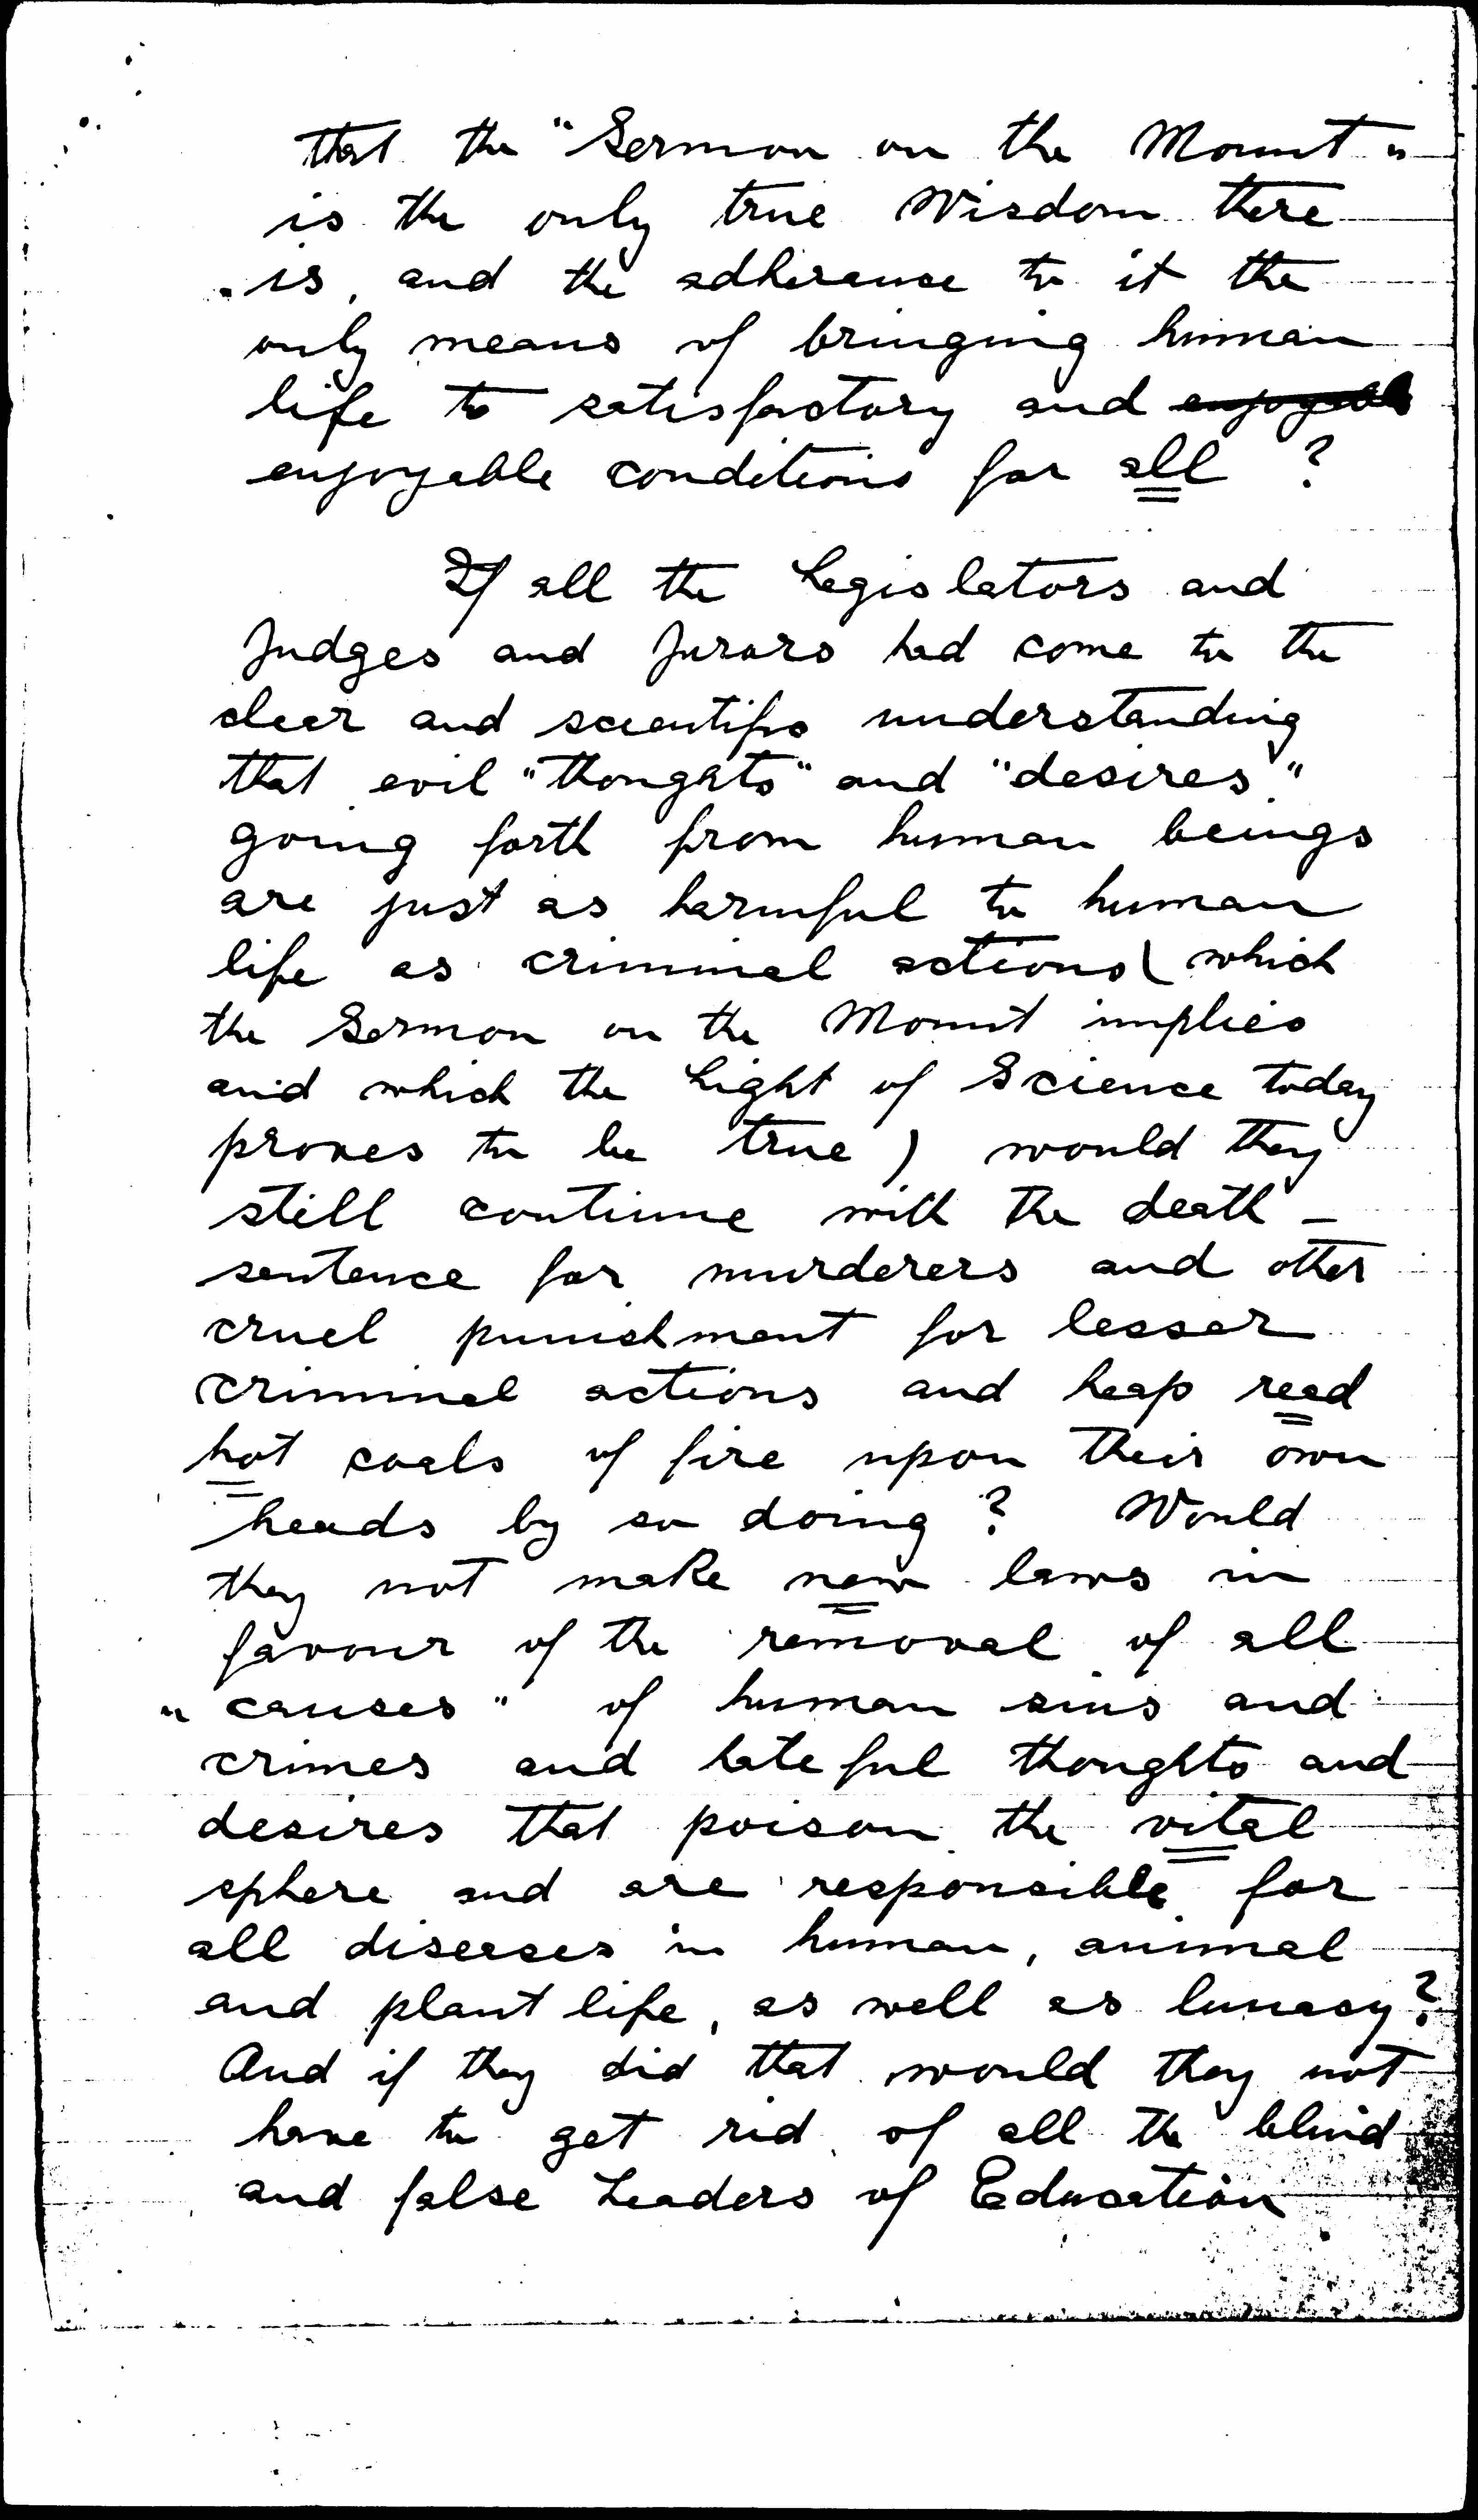 that the "Sermon on the Mount"
is the only true Wisdom there
is, and the adherence to it the
only means of bringing human
life to satisfactory and enjoyable
enjoyable conditions for all ?
If all the Legislators and
Judges and Jurors had come to the
clear and scientific understanding
that evil "thoughts" and "desires"
going forth from human beings
are just as harmful to human
life as criminal actions (which
the Sermon on the Mount implies
and which the Light of Science today
proves to be true) would they
still continue with the death-
sentence for murderers and other
cruel punishment for lesser
criminal actions and heap read
hot coals of fire upon their own
heads by so doing ? Would
they not make new laws in
favour of the removal of all
"causes" of human sins and
crimes and hateful thoughts and
desires that poison the vital
sphere and are responsible for
all diseases in human, animal
and plant life, as well as lunacy?
And if they did that would they not
have to get rid of all the blind
and false Leaders of Education